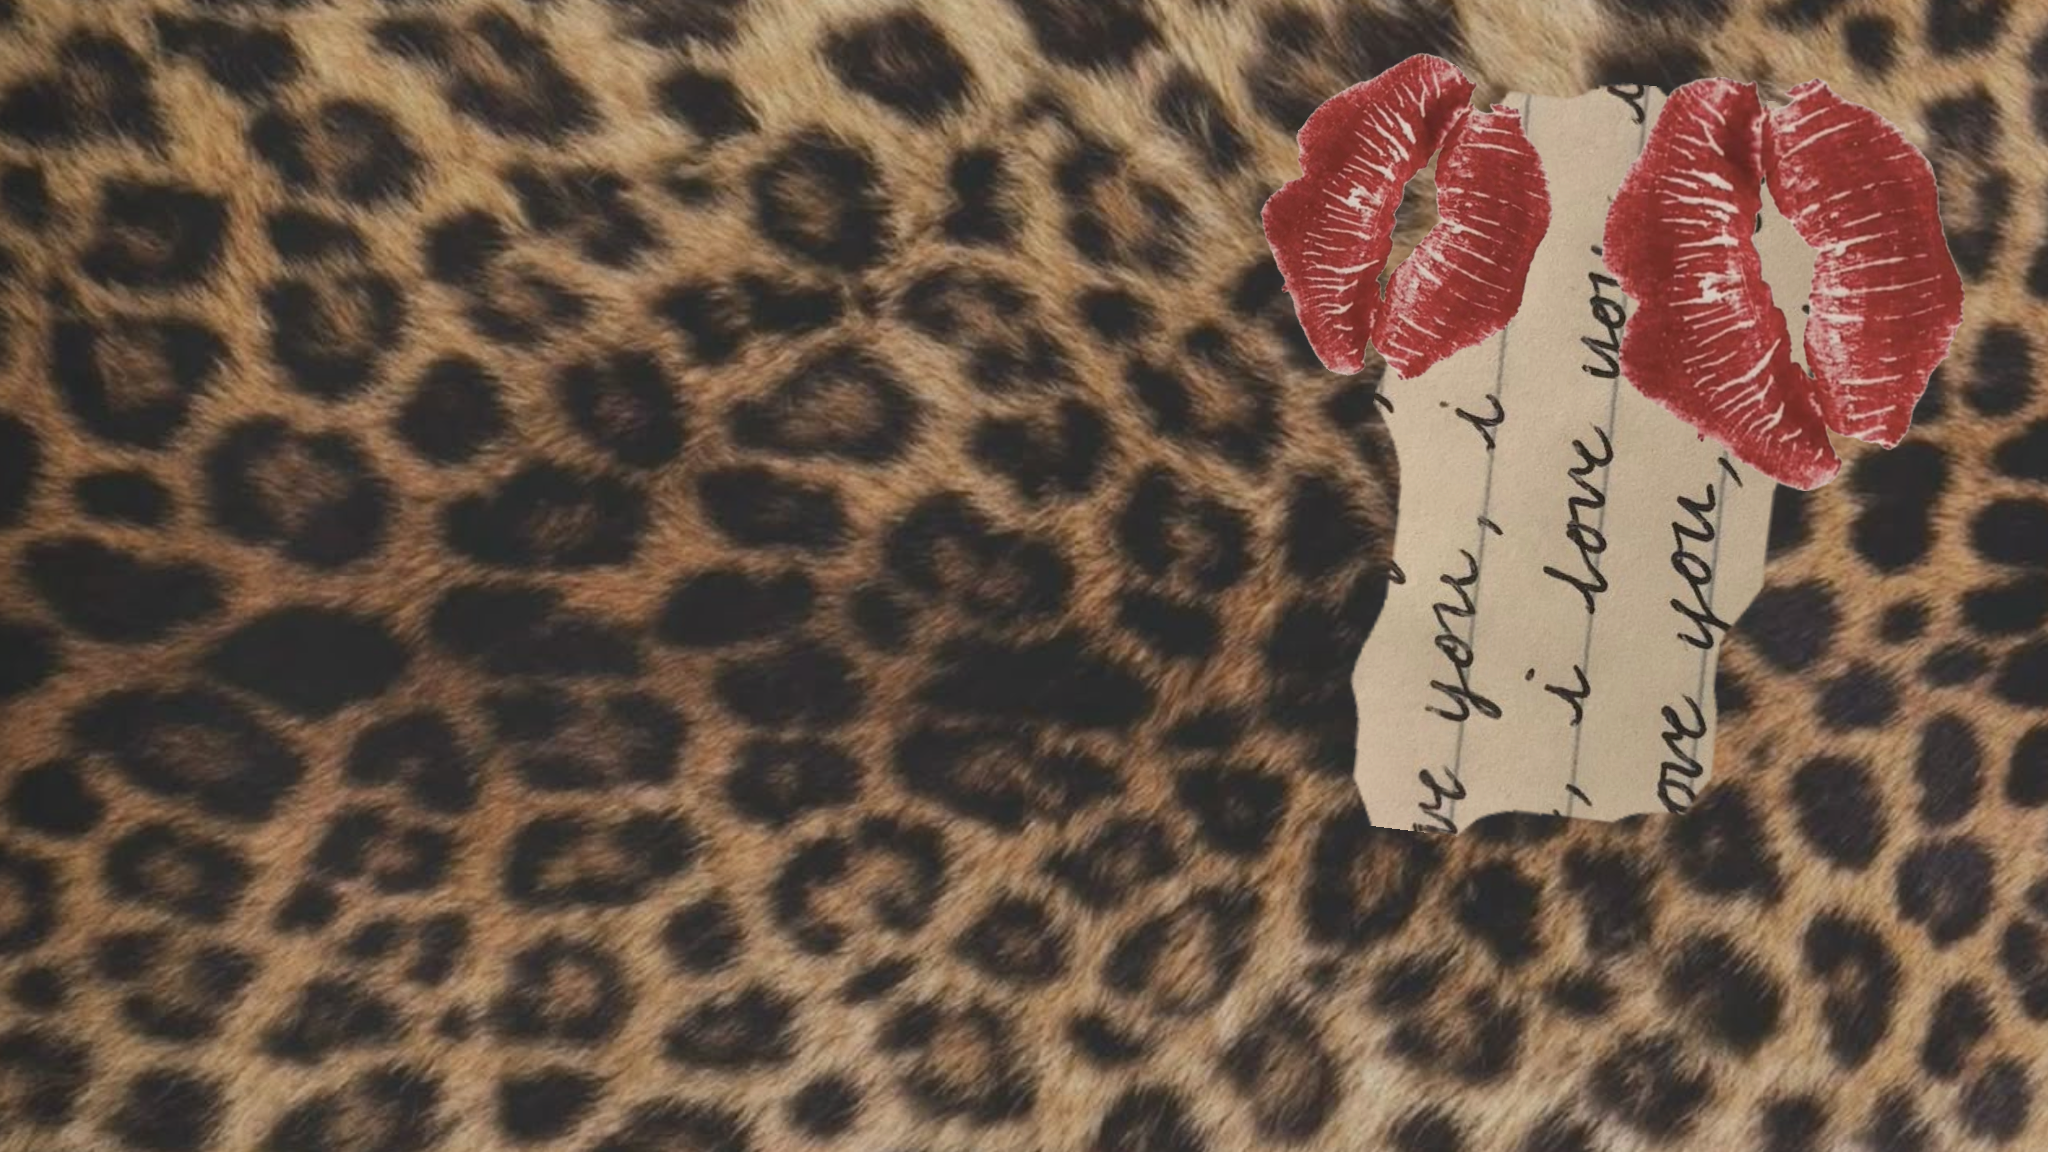 ve you, i
, i love you
ove you,